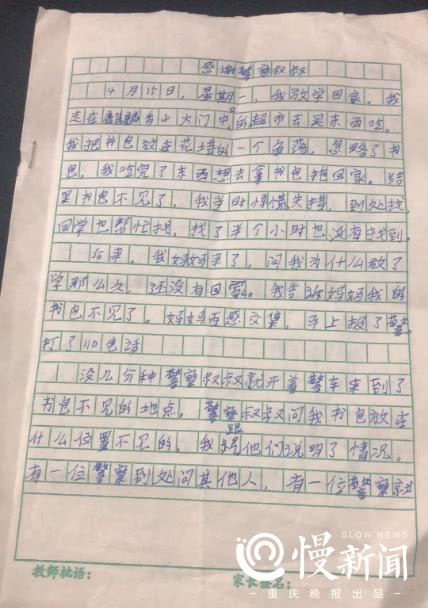 感谢警察叔叔
4月15日，星期二，我放学回家。我
走在麒麟香山大门中的超市去买东西吃。
我把书包放在花坛的一个角落，忽略了书
包，我吃完了东西想去拿书包回家。结
果书包不见了，我当时慌慌失措，到处找，
同学也帮忙找，找了半个小时也没有找到。
后来，我妈妈来了，问我为什么放了
学那么久，还没有回家。我告诉妈妈我的
书包不见了。妈妈百感交集，马上报了警，
打了110电话
没几分种警察叔叔就开着警车来到了
书包不见的地点。警察叔叔问我书包放在
什么位置不见的，我跟他们说明了情况。
有一位警察到处问其他人，有一位警察就
教师批语：
家长签名：
SLOW NEWS
慢新闻
重庆晚报出品